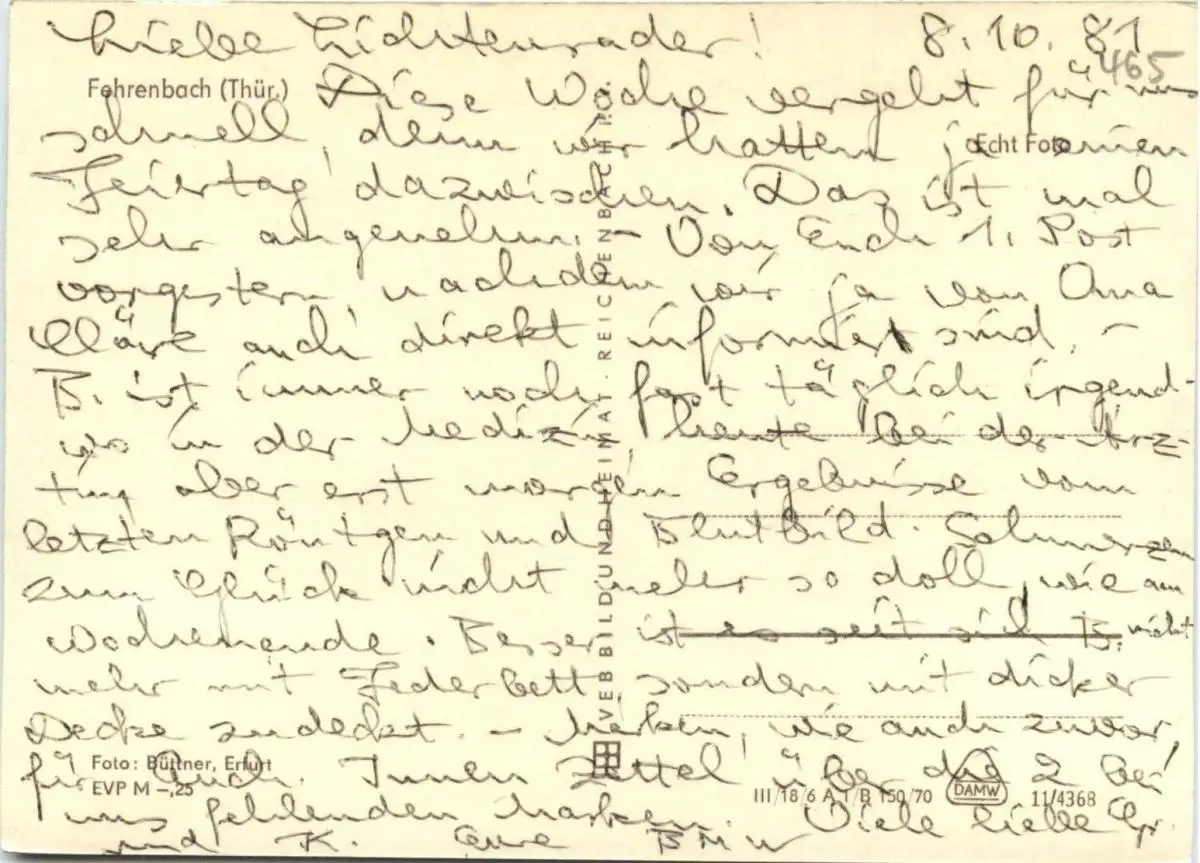 Liebe Lichtenrader! 8.10.81
465
Fehrenbach (Thür.)
Diese Woche vergeht für uns
schnell, denn wir hatten ja einen
Echt Foto
Feiertag dazwischen. Das ist mal
sehr angenehm. – Von Euch 1. Post
vorgestern, nachdem wir ja von Oma
Kläre auch direkt informiert sind. –
B. ist immer noch fast täglich irgend-
wo in der Medizin, heute bei der Ärz-
tin, aber erst morgen Ergebnisse vom
letzten Röntgen und Blutbild. Schmerzen
zum Glück nicht mehr so doll, wie am
Wochenende. Besser ist es seit sich B. nicht
mehr mit Federbett, sondern mit dicker
Decke zudeckt. – Marken, wie auch zuvor
für Euch. Innen Zettel über die 2 bei
uns fehlenden Marken. Viele liebe Gr.
und K. Eure BMW
Foto: Büttner, Erfurt
EVP M –,25
VEB BILD UND HEIMAT · REICHENBACH I. V.
III/18/6 A 1/B 150/70
DAMW
11/4368